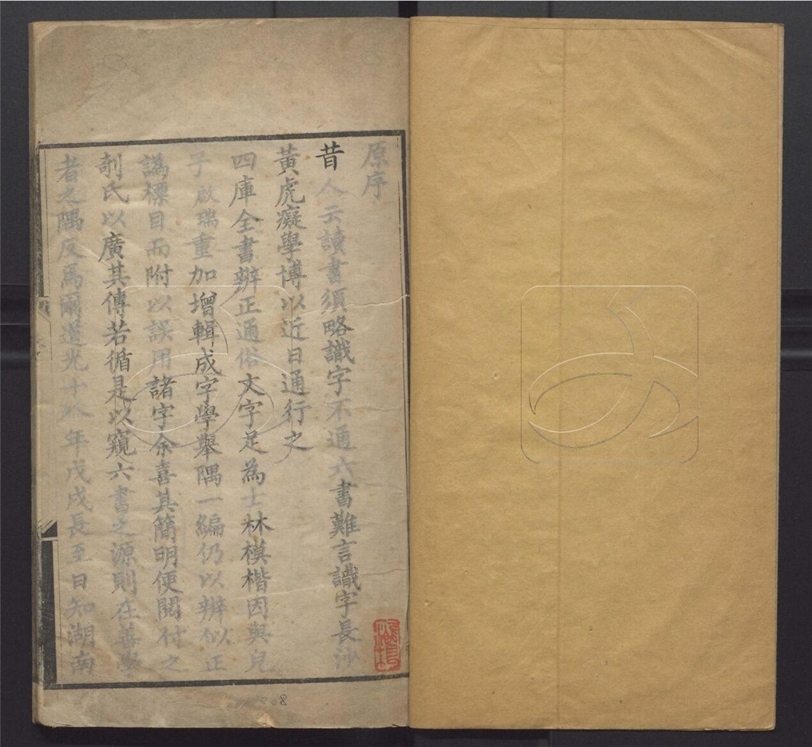 原序
昔人云讀書須略識字不通六書難言識字長沙
黃虎癡學博以近日通行之
四庫全書辨正通俗文字足為士林模楷因與兒
子啟瑞重加增輯成字學舉隅一編仍以辨似正
譌標目而附以誤用諸字余喜其簡明便閱付之
剞氏以廣其傳若循是以窺六書之源則在善學
者之隅反焉爾道光十八年戊戌長至日知湖南